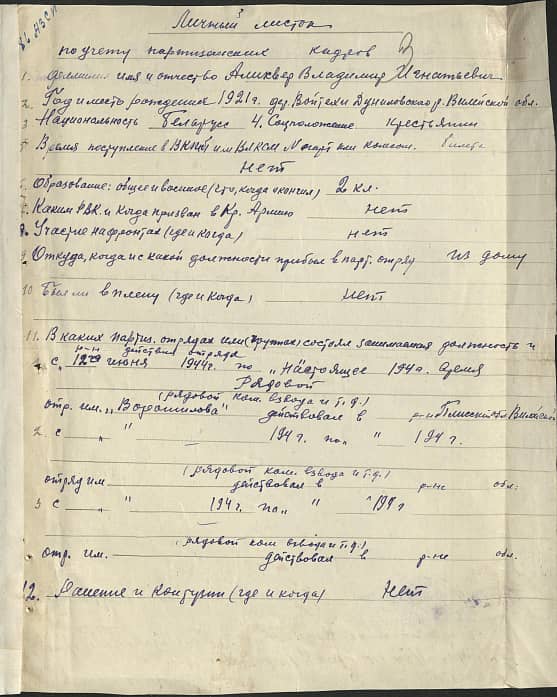 Личный листок
по учету партизанских кадров
1. Фамилия имя и отчество Алихвер Владимир Игнатьевич
2. Год и место рождения 1921 г. дер. Войтехи Дуниловского р. Вилейской обл.
3 Национальность Беларус 4. Соцположение крестьянин
5 Время поступления в ВКП(б) или ВЛКСМ № парт или комсом. билета
нет
6. Образование: общее и военное (что, когда окончил) 2 кл.
7. Каким РВК и когда призван в Кр. Армию нет
8. Участие на фронтах (где и когда) нет
9 Откуда, когда и с какой должности прибыл в парт. отряд из дому
10 Были ли в плену (где и когда) нет
11. В каких партиз. отрядах или (группах) состоял занимаемая должность и
р-н действия отряда
с „12“ июня 1944 г. по „Настоящее 194 г. время
Рядовой
(рядовой ком. взвода и т.д.)
отр. им. „Ворошилова“ действовал в р-не Плисской обл Вилейской
2 с „ “ 194 г. по „ “ 194 г.
(рядовой ком. взвода и т.д.)
отряд им. действовал в р-не обл.
3 с „ “ 194 г. по „ “ 194 г
(рядовой ком взвода и т.д.)
отр. им. действовал в р-не обл.
12. Ранение и контузии (где и когда) Нет